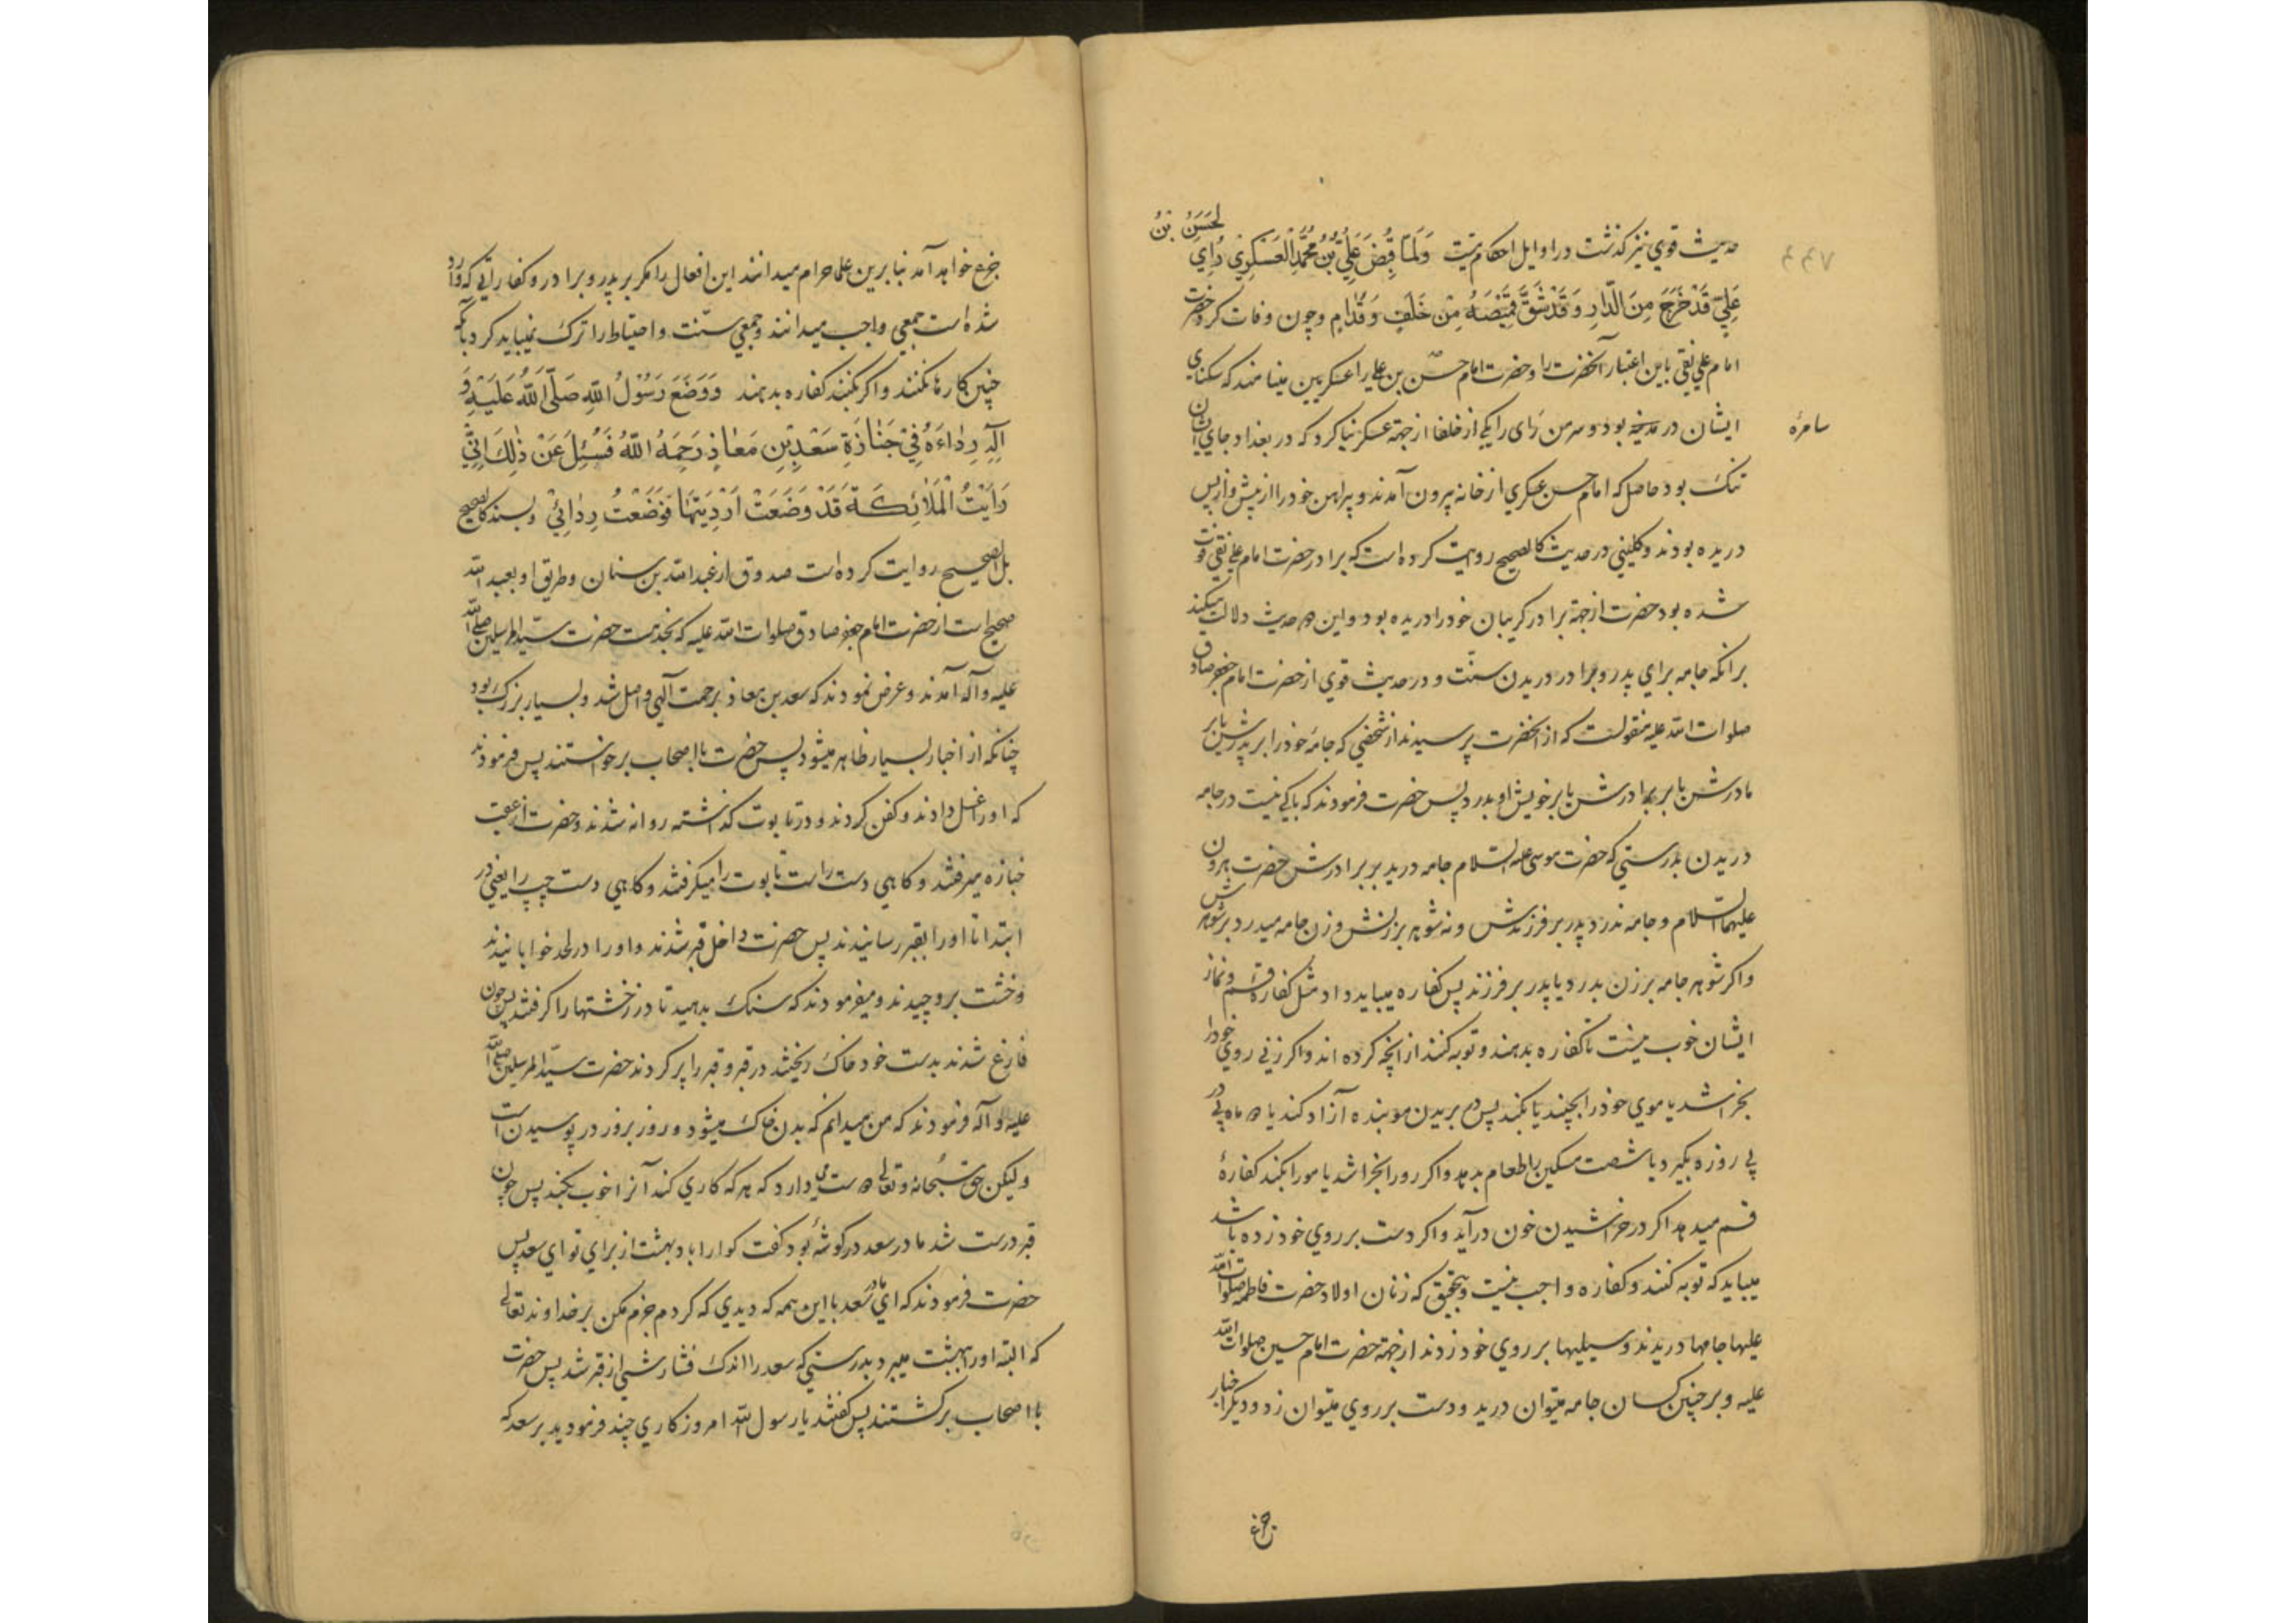 حدیث قوی نیز کذشت در اوایل احکام میّت وَلَمّا قُبِضَ عَلِیُّ بْنُ مُحَمَّدٍ الْعَسْکَرِیُّ رُاِیَ الحَسَنُ بْنُ
عَلِیٍّ قَدْ خَرَجَ مِنَ الدّارِ وَقَدْ شَقَّ قَمِیْصَهُ مِنْ خَلْفٍ وَقُدّامٍ و چون وفات کرد حضرت
امام علی نقی باین اعتبار آنحضرت را و حضرت امام حسن بن علی را عسکریین مینامند که سکنای
سامرهٔ
ایشان در مدینه بود و سرمن رای را یکی از خلفا از جهة عسکر بنا کرد که در بغداد جای ایشان
تنک بود حاصل که امام حسن عسکری از خانه بیرون آمدند و پیراهن خود را از پیش و از پس
دریده بودند و کلینی در حدیث کالصحیح روایت کرده است که برادر حضرت امام علی نقی فوت
شده بود حضرت از جهة برادر کریبان خود را دریده بود و این دو حدیث دلالت میکند
برانکه جامه برای پدر و برادر دریدن سنّت و در حدیث قوی از حضرت امام جعفر صادق
صلوات الله علیه منقولست که از آنحضرت پرسیدند از شخصی که جامهٔ خود را بر پدرش یا بر
مادرش یا بر برادرش یا بر خویش او بدرد پس حضرت فرمودند که باکی نیست در جامه
دریدن بدرستی که حضرت موسی علیه السلام جامه درید بر برادرش حضرت هرون
علیهما السلام و جامه ندرد پدر بر فرزندش و نه شوهر بر زنش و زن جامه میدرد بر شوهرش
و اکر شوهر جامه بر زن بدرد یا پدر بر فرزند پس کفاره میباید داد مثل کفارهٔ قسم و نماز
ایشان خوب نیست تا کفاره بدهند و توبه کنند از انچه کرده اند و اکر زنی روی خود را
بخراشد یا موی خود را بچیند یا بکند پس در بریدن مو بنده آزاد کند یا دو ماه پی در
پی روزه بکیرد یا شصت مسکین را طعام بدهد و اکر رو را بخراشد یا مو را بکند کفارهٔ
قسم میدهد اکر در خراشیدن خون درآید و اکر دست بر روی خود زده باشد
میباید که توبه کنند و کفاره واجب نیست و بتحقیق که زنان اولاد حضرت فاطمه صلوات الله
علیها جامها دریدند و سیلیها بر روی خود زدند از جهة حضرت امام حسین صلوات الله
علیه و بر چنین کسان جامه میتوان درید و دست بر روی میتوان زد و دیکر اخبار
جزع خواهد آمد بنا برین علما حرام میدانند این افعال را مکر بر پدر و برادر و کفاراتی که وارد
شده است جمعی واجب میدانند و جمعی سنّت و احتیاط را ترک نمیباید کرد بآنکه
چنین کارها نکنند و اکر بکنند کفاره بدهند وَوَضَعَ رَسُوْلُ اللّهِ صَلَّی اللّهُ عَلَیْهِ وَ
آلِهِ رِدٰاءَهُ فِیْ جَنٰازَةِ سَعْدِ بْنِ مَعٰاذٍ رَحِمَهُ اللّهُ فَسُئِلَ عَنْ ذٰلِکَ اِنِّیْ
رَاَیْتُ الْمَلٰائِکَةَ قَدْ وَضَعَتْ اَرْدِیَتَهٰا فَوَضَعْتُ رِدٰائِیْ و بسند کالصحیح
بل الصحیح روایت کرده است صدوق از عبدالله بن سنان و طریق او بعبد الله
صحیح است از حضرت امام جعفر صادق صلوات الله علیه که بخدمت حضرت سیّد المرسلین صلی الله
علیه و آله آمدند و عرض نمودند که سعد بن معاذ برحمت آلهی واصل شد و بسیار بزرک بود
چنانکه از اخبار بسیار ظاهر میشود پس حضرت با اصحاب برخواستند پس فرمودند
که او را غسل دادند و کفن کردند و در تابوت کذاشته روانه شدند و حضرت از عقب
جنازه میرفتند و کاهی دست راست تابوت را میکرفتند و کاهی دست چپ را یعنی در
ابتدا تا او را بقبر رسانیدند پس حضرت داخل قبر شدند و او را در لحد خوابانیدند
و خشت بر و چیدند و میفرمودند که سنک بدهید تا درز خشتها را کرفتند پس چون
فارغ شدند بدست خود خاک ریختند در قبر و قبر را پر کردند حضرت سیّد المرسلین صلی الله
علیه و آله فرمودند که من میدانم که بدن خاک میشود و روز بروز در پوسیدن است
ولیکن حق سُبحانه و تعالی دوست میدارد که هر که کاری کند آنرا خوب بکند پس چون
قبر درست شد مادر سعد در کوشهٔ بود کفت کوارا باد بهشت از برای تو ای سعد پس
حضرت فرمودند که ای مادر سعد با این همه که دیدی که کردم جزم مکن بر خداوند تعالی
که البته او را بهشت میبرد بدرستی که سعد را اندک فشارشی از قبر شد پس حضرت
با اصحاب برکشتند پس کفتند یا رسول الله امروز کاری چند فرمودید بر سعد که